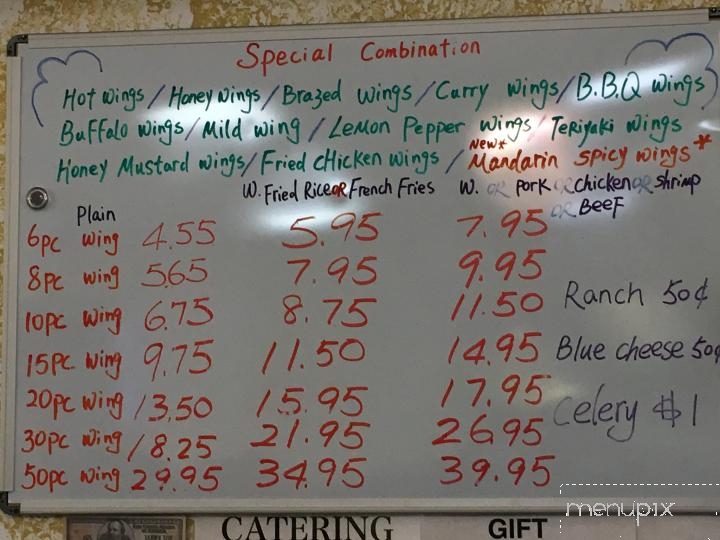 Special Combination
Hot wings / Honey wings / Brazed wings / Curry wings / B.B.Q wings
Buffalo wings / Mild wing / Lemon Pepper wings / Teriyaki wings
New*
Honey Mustard wings / Fried Chicken wings / Mandarin spicy wings*
W. Fried Rice OR French Fries W. OR Pork OR chicken OR shrimp
Plain OR BEEF
6pc wing 4.55 5.95 7.95
8pc wing 565 7.95 9.95
Ranch 50¢
10pc wing 6.75 8.75 11.50
15pc wing 9.75 11.50 14.95 Blue cheese 50¢
20pc wing 13.50 15.95 17.95
Celery $1
30pc wing 18.25 21.95 26.95
50pc wing 29.95 34.95 39.95
menupix
CATERING GIFT